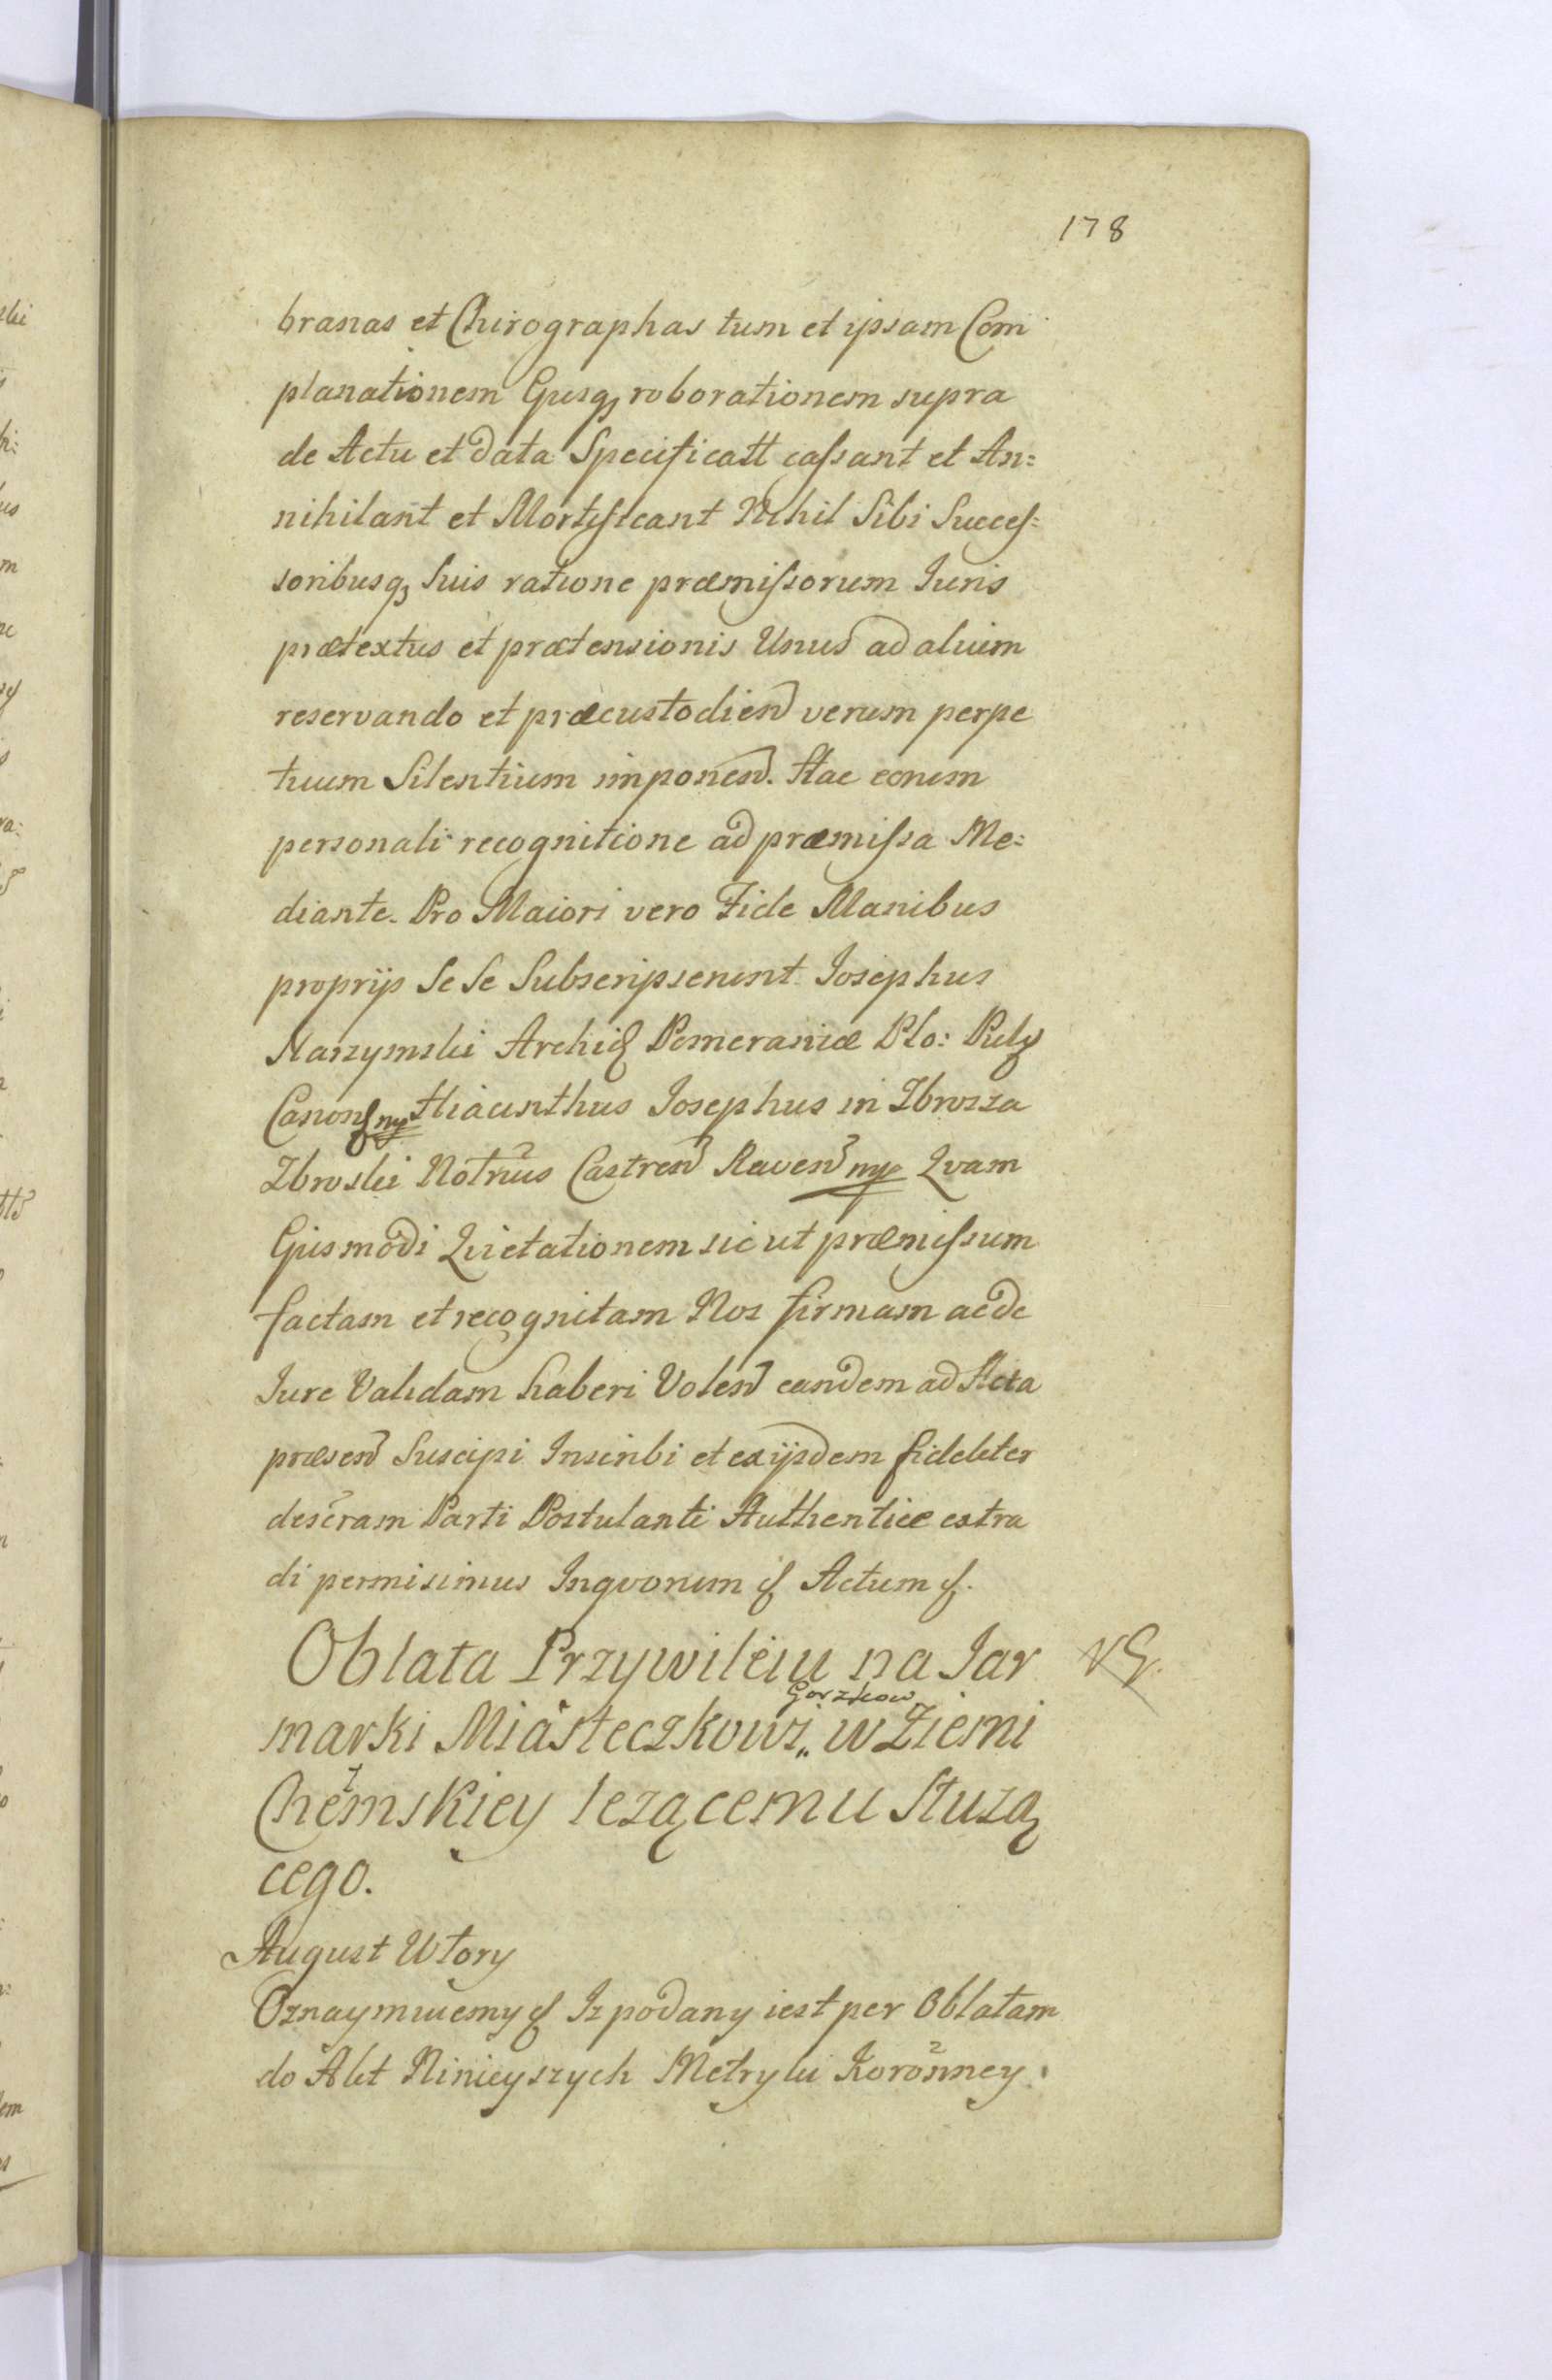 178
branas et Chirographas tum et ipsam Com
planationem Ejusq3 roborationem supra
de Actu et data Specificatt cassant et An=
nihilant et Mortificant Nihil Sibi Succes=
soribusq3 Suis ratione præmissorum Iuris
prætextus et prætensionis Unus ad alium
reservando et præcustodien verum perpe
tuum Silentium imponen. Hac eorum
personali recognitione ad præmissa Me=
diante. Pro Maiori vero Fide Manibus
proprijs Se Se Subscripserunt Iosephus
Narzymski Pomeraniæ Plo:
Canon mp Hiacinthus Iosephus in Zbrosza
Zbroski Notrius Castren Raven mp Qvam
Ejusmodi Qvietationem sicut præmissum
factam et recognitam Nos firmam ac de
Iure Validam haberi Volen eandem ad Acta
præsen Suscipi Inscribi et ex ijsdem fideliter
descram Parti Postulanti Authentice extra
di permisimus Inqvorum Actum
Oblata Przywileiu na Iar
marki Miasteczkowi,, Gorzkow w Ziemi
Chełmskiey lezącemu Służą
cego.
August Wtory
Oznaymuiemy Iz podany iest per Oblatam
do Akt Ninieyszych Metryki Koronney